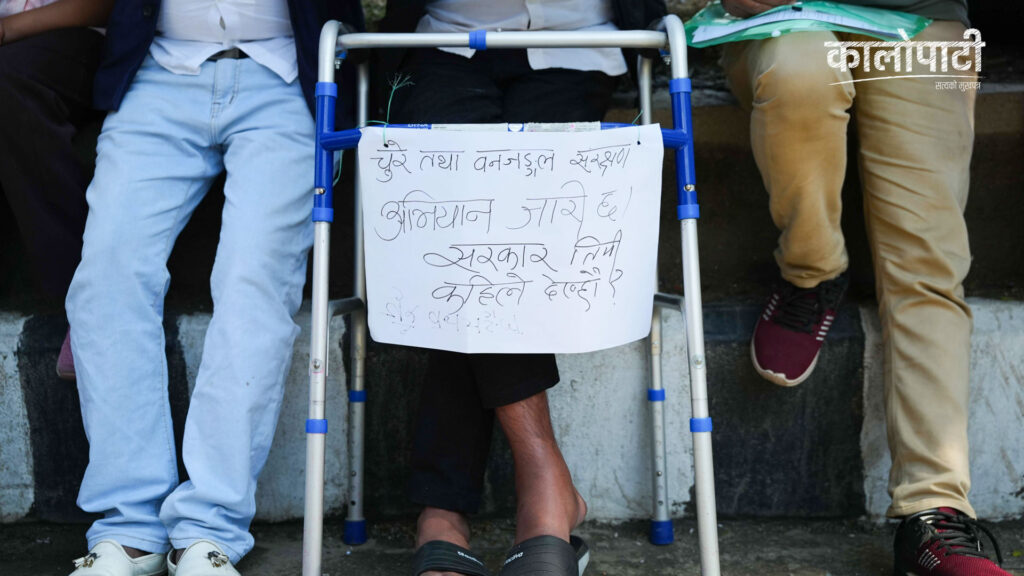 कालोपाटी
सत्यको मुखपत्र
चुरे तथा वनजङ्गल संरक्षण
अभियान जारी छ।
सरकार तिमी
कहिले देख्छौ?